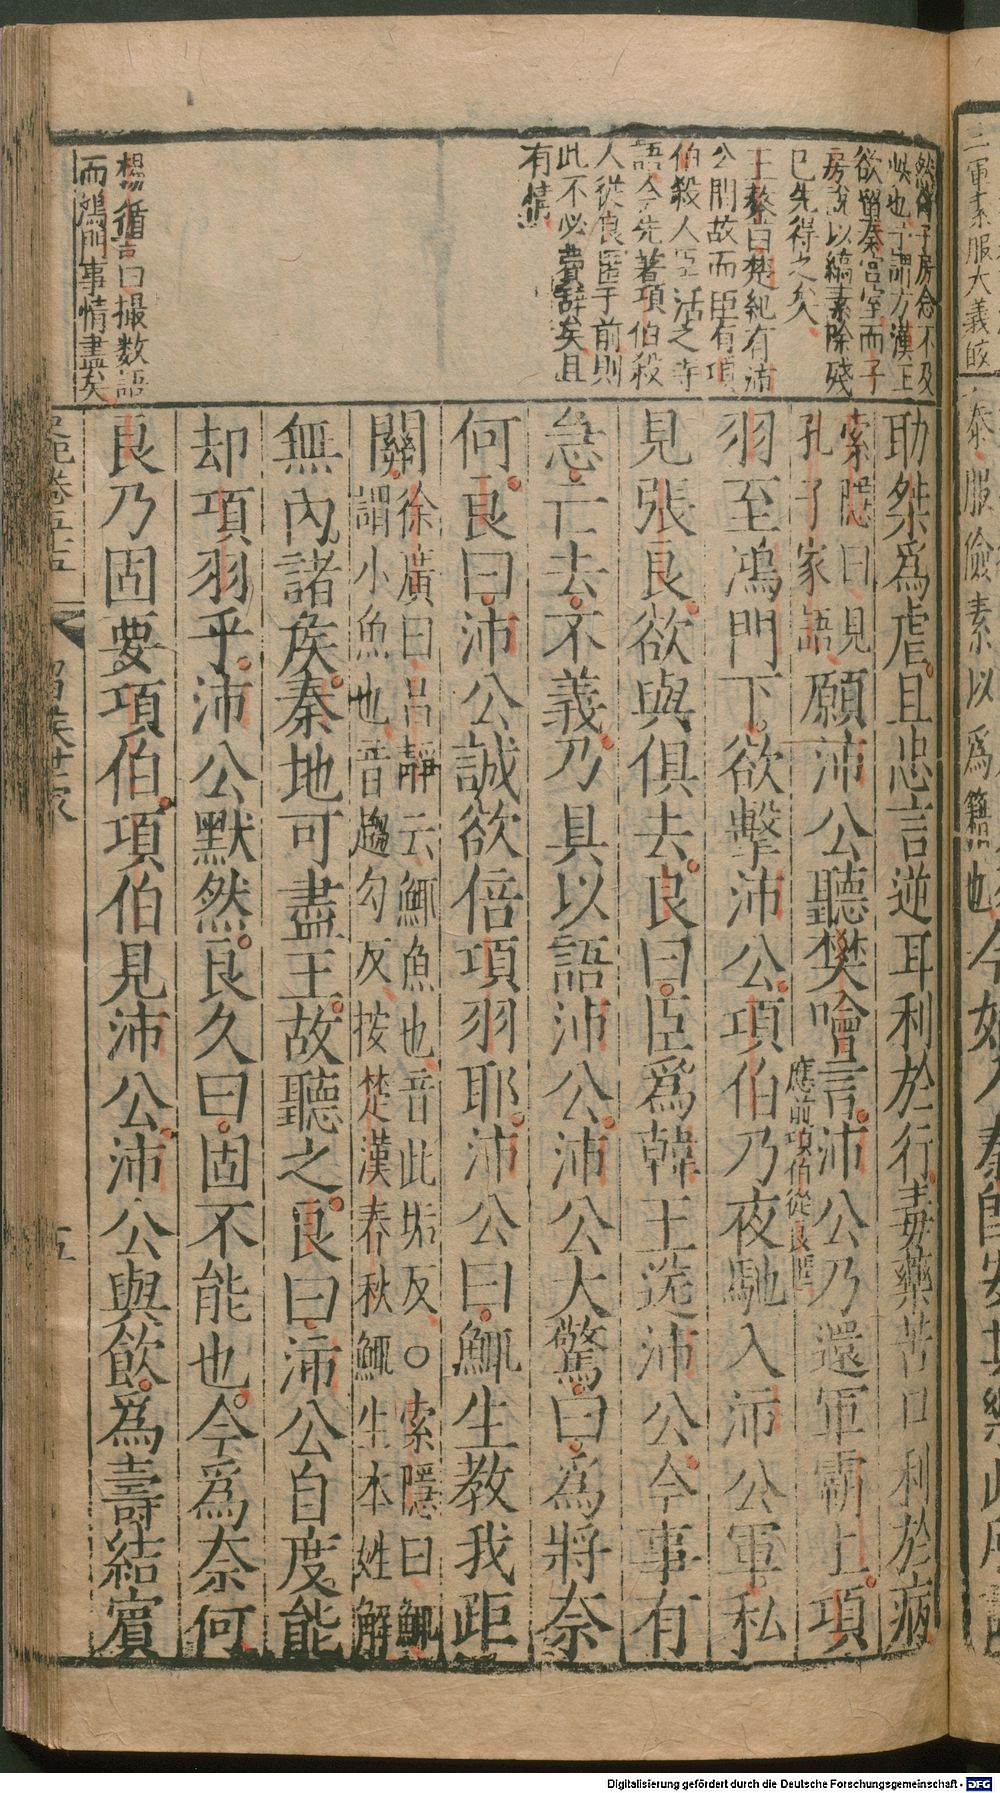 然𢙣子房念不及
此也予謂方漢王
欲留秦宮室而子
房說以縞素除殘
已先得之矣
王鏊曰楚紀有沛
公間故而臣有項
伯殺人臣活之等
語今先著項伯殺
人從良匿于前則
此不必費辭矣且
有情
楊循吉曰撮数語
而鴻門事情盡矣
助桀爲虐且忠言逆耳利於行毒藥苦口利於病
索隱曰見
孔子家語
願沛公聽樊噲言沛公乃還軍霸上項
應前項伯從良匿
羽至鴻門下欲擊沛公項伯乃夜馳入沛公軍私
見張良欲與俱去良曰臣爲韓王送沛公今事有
急亡去不義乃具以語沛公沛公大驚曰爲將奈
何良曰沛公誠欲倍項羽耶沛公曰鯫生教我距
關
徐廣曰呂靜云鯫魚也音此垢反○索隱曰鯫
謂小魚也音趨勾反按楚漢春秋鯫生本姓解
無內諸侯秦地可盡王故聽之良曰沛公自度能
却項羽乎沛公默然良久曰固不能也今爲奈何
良乃固要項伯項伯見沛公沛公與飲爲壽結賓
史記卷五十五
留侯世家
五
三軍素服大義皎
秦服儉素以爲籍也今始入秦即安其樂此所謂
Digitalisierung gefördert durch die Deutsche Forschungsgemeinschaft - DFG